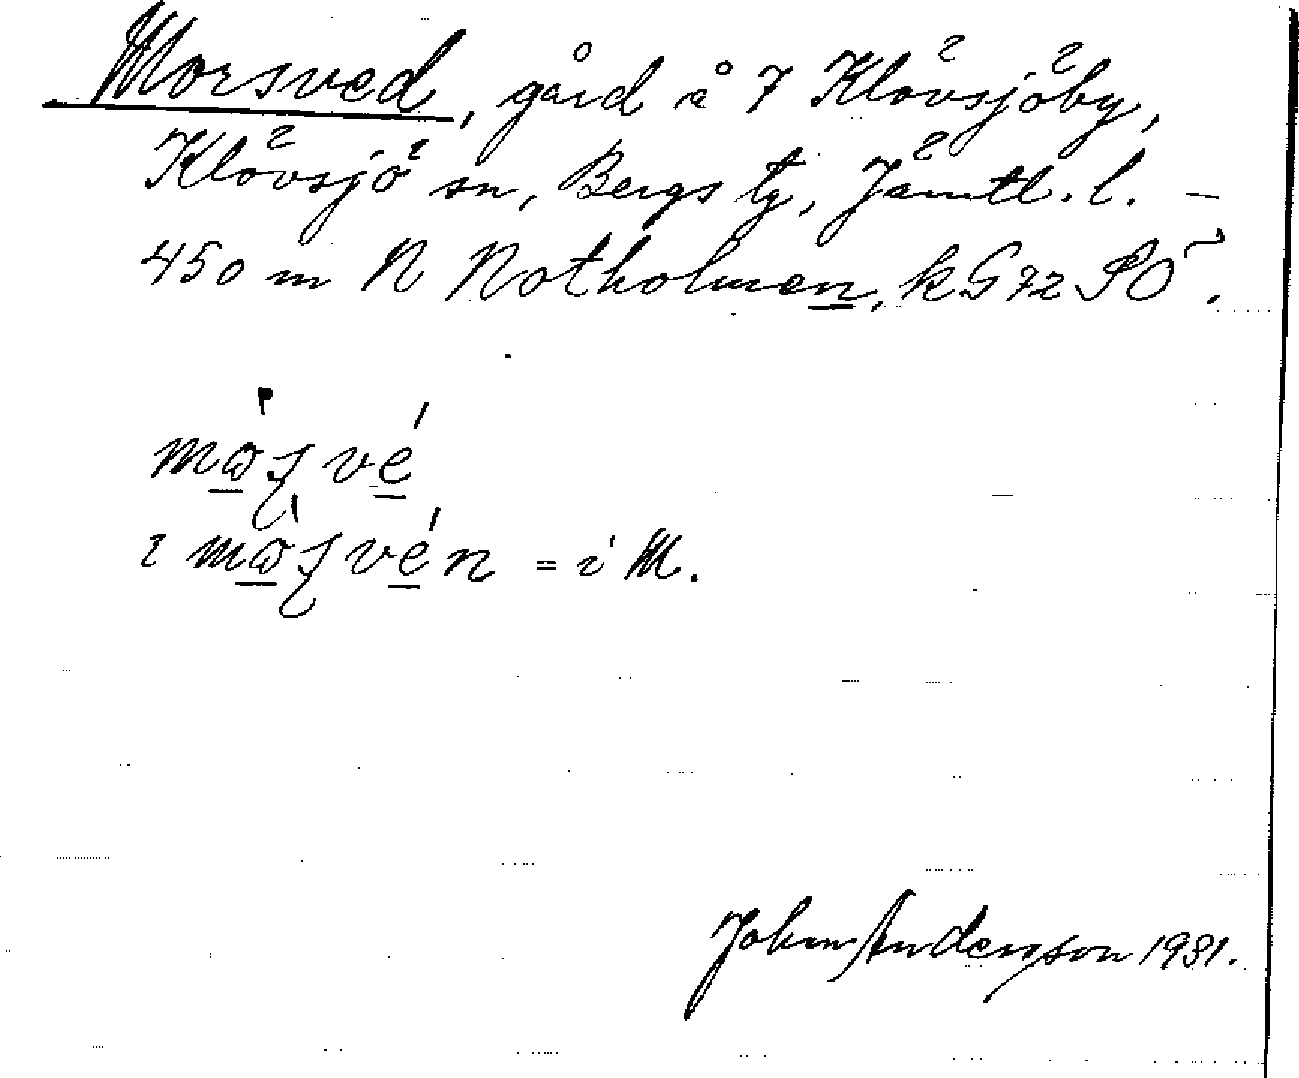 Morsved, gård å 7 Klövsjöby,
Klövsjö sn, Bergs tg, Jämtl. l. –
450 m N Notholmen, kG72 SÖ.
i = i M.
John Andersson 1931.